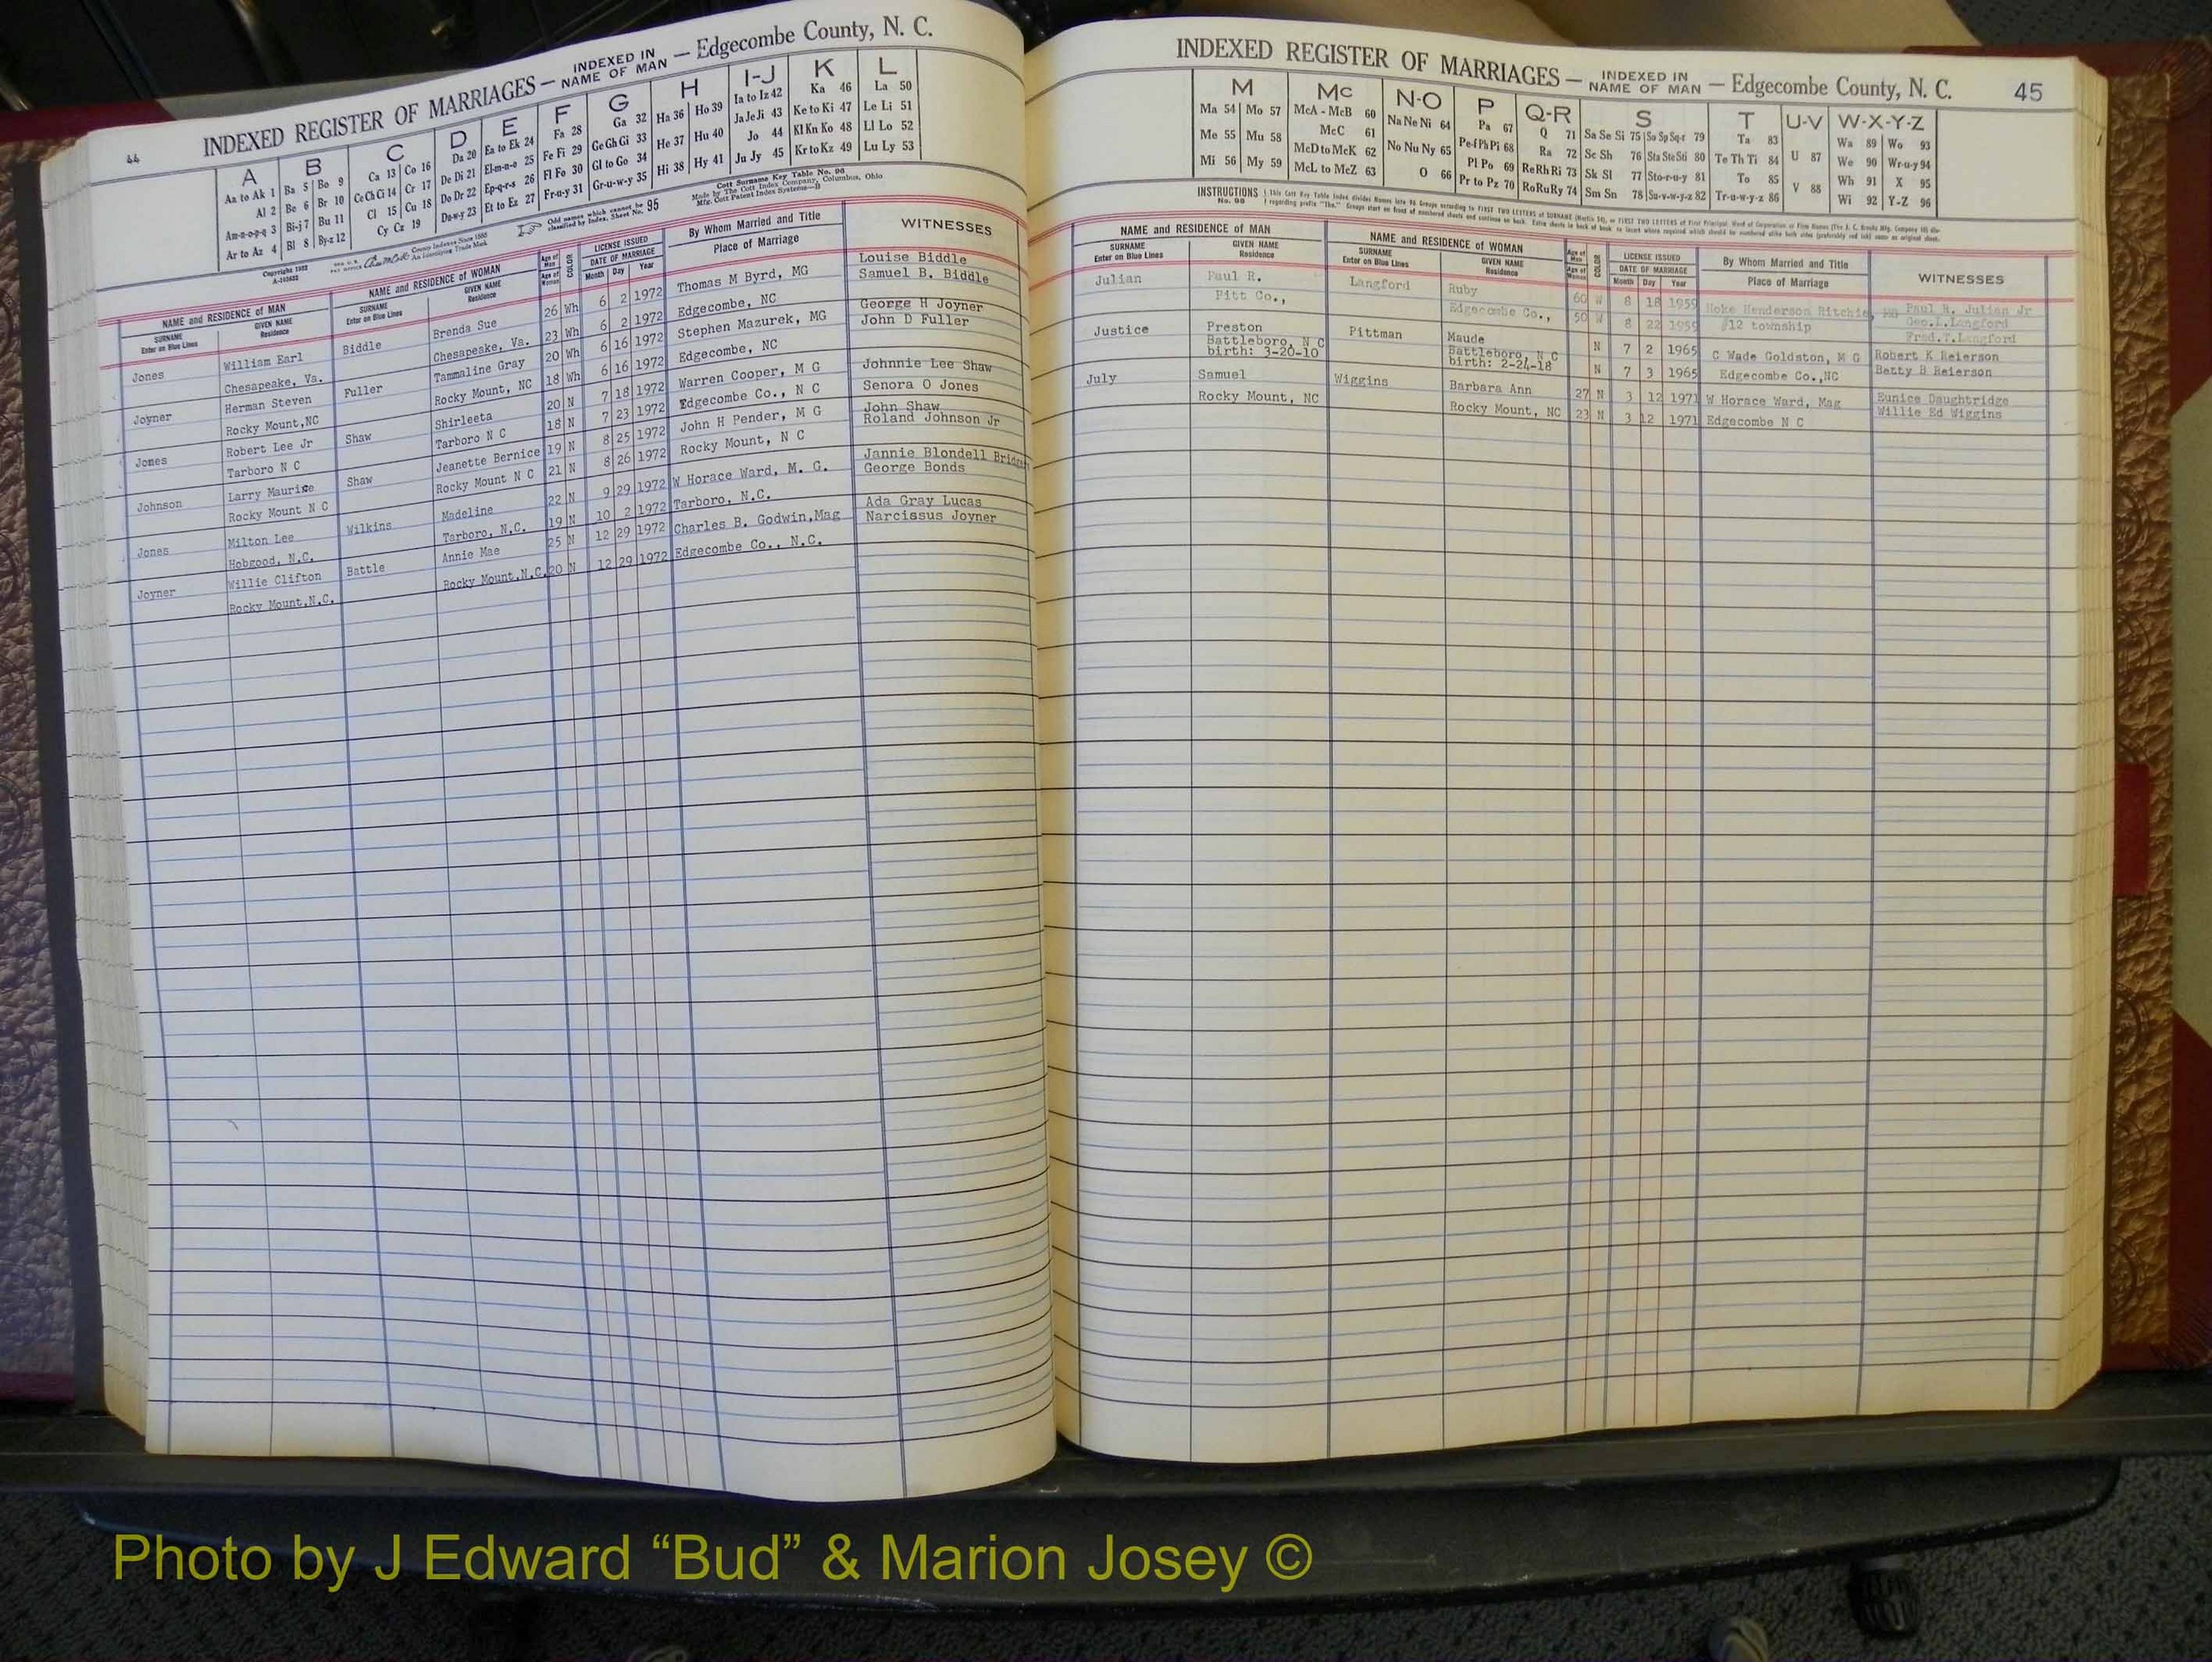 44
INDEXED REGISTER OF MARRIAGES — INDEXED IN NAME OF MAN — Edgecombe County, N. C.
A B C D E F G H I-J K L
Aa to Ak 1 Ba 5 Bo 9 Ca 13 Co 16 Da 20 Ea to Ek 24 Fa 28 Ga 32 Ha 36 Ho 39 Ia to Iz 42 Ka 46 La 50
Al 2 Be 6 Br 10 Ce Ch Ci 14 Cr 17 De Di 21 El-m-n-o 25 Fe Fi 29 Ge Gh Gi 33 He 37 Hu 40 Ja Je Ji 43 Ke to Ki 47 Le Li 51
Am-n-o-p-q 3 Bi-j 7 Bu 11 Cl 15 Cu 18 Do Dr 22 Ep-q-r-s 26 Fl Fo 30 Gl to Go 34 Hi 38 Hy 41 Jo 44 Kl Kn Ko 48 Ll Lo 52
Ar to Az 4 Bl 8 By-z 12 Cy Cz 19 Du-w-y 23 Et to Ez 27 Fr-u-y 31 Gr-u-w-y 35 Ju Jy 45 Kr to Kz 49 Lu Ly 53
Odd names which cannot be classified by Index, Sheet No. 95
Cott Surname Key Table No. 96
Made by The Cott Index Company, Columbus, Ohio
Mfg. Cott Patent Index Systems—B
NAME and RESIDENCE of MAN NAME and RESIDENCE of WOMAN Age of Man COLOR LICENSE ISSUED By Whom Married and Title WITNESSES
SURNAME Enter on Blue Lines GIVEN NAME Residence SURNAME Enter on Blue Lines GIVEN NAME Residence Age of Woman DATE OF MARRIAGE Month Day Year Place of Marriage
Jones William Earl Biddle Brenda Sue 26 Wh 6 2 1972 Thomas M Byrd, MG Louise Biddle
Chesapeake, Va. Chesapeake, Va. 23 Wh 6 2 1972 Edgecombe, NC Samuel B. Biddle
Joyner Herman Steven Fuller Tammaline Gray 20 Wh 6 16 1972 Stephen Mazurek, MG George H Joyner
Rocky Mount,NC Rocky Mount, NC 18 Wh 6 16 1972 Edgecombe, NC John D Fuller
Jones Robert Lee Jr Shaw Shirleeta 20 N 7 18 1972 Warren Cooper, M G Johnnie Lee Shaw
Tarboro N C Tarboro N C 18 N 7 23 1972 Edgecombe Co., N C Senora O Jones
Johnson Larry Maurice Shaw Jeanette Bernice 19 N 8 25 1972 John H Pender, M G John Shaw
Rocky Mount N C Rocky Mount N C 21 N 8 26 1972 Rocky Mount, N C Roland Johnson Jr
Jones Milton Lee Wilkins Madeline 22 N 9 29 1972 W Horace Ward, M. G. Jannie Blondell
Hobgood, N.C. Tarboro, N.C. 19 N 10 2 1972 Tarboro, N.C. George Bonds
Joyner Willie Clifton Battle Annie Mae 25 N 12 29 1972 Charles B. Godwin,Mag Ada Gray Lucas
Rocky Mount,N.C. Rocky Mount,N.C. 20 N 12 29 1972 Edgecombe Co., N.C. Narcissus Joyner
INDEXED REGISTER OF MARRIAGES — INDEXED IN NAME OF MAN — Edgecombe County, N. C. 45
M Mc N-O P Q-R S T U-V W-X-Y-Z
Ma 54 Mo 57 McA - McB 60 Na Ne Ni 64 Pa 67 Q 71 Sa Se Si 75 So Sp Sq-r 79 Ta 83 U 87 Wa 89 Wo 93
Me 55 Mu 58 McC 61 No Nu Ny 65 Pe-f Ph Pi 68 Ra 72 Sc Sh 76 Sta Ste Sti 80 Te Th Ti 84 V 88 We 90 Wr-u-y 94
Mi 56 My 59 McD to McK 62 O 66 Pl Po 69 Re Rh Ri 73 Sk Sl 77 Sto-r-u-y 81 To 85 Wh 91 X 95
McL to McZ 63 Pr to Pz 70 Ro Ru Ry 74 Sm Sn 78 Su-v-w-y-z 82 Tr-u-w-y-z 86 Wi 92 Y-Z 96
INSTRUCTIONS
NAME and RESIDENCE of MAN NAME and RESIDENCE of WOMAN Age of Man COLOR LICENSE ISSUED By Whom Married and Title WITNESSES
SURNAME Enter on Blue Lines GIVEN NAME Residence SURNAME Enter on Blue Lines GIVEN NAME Residence Age of Woman DATE OF MARRIAGE Month Day Year Place of Marriage
Julian Paul R. Langford Ruby 60 W 8 18 1959 Hoke Henderson Ritchie, MG Paul R. Julian Jr
Pitt Co., Edgecombe Co., 50 W 8 22 1959 #12 township Geo.L.Langford
Fred.T.Langford
Justice Preston Pittman Maude N 7 2 1965 C Wade Goldston, M G Robert K Reierson
Battleboro, N C Battleboro, N C N 7 3 1965 Edgecombe Co.,NC Betty B Reierson
birth: 3-20-10 birth: 2-24-18
July Samuel Wiggins Barbara Ann 27 N 3 12 1971 W Horace Ward, Mag Eunice Daughtridge
Rocky Mount, NC Rocky Mount, NC 23 N 3 12 1971 Edgecombe N C Willie Ed Wiggins
Photo by J Edward “Bud” & Marion Josey ©